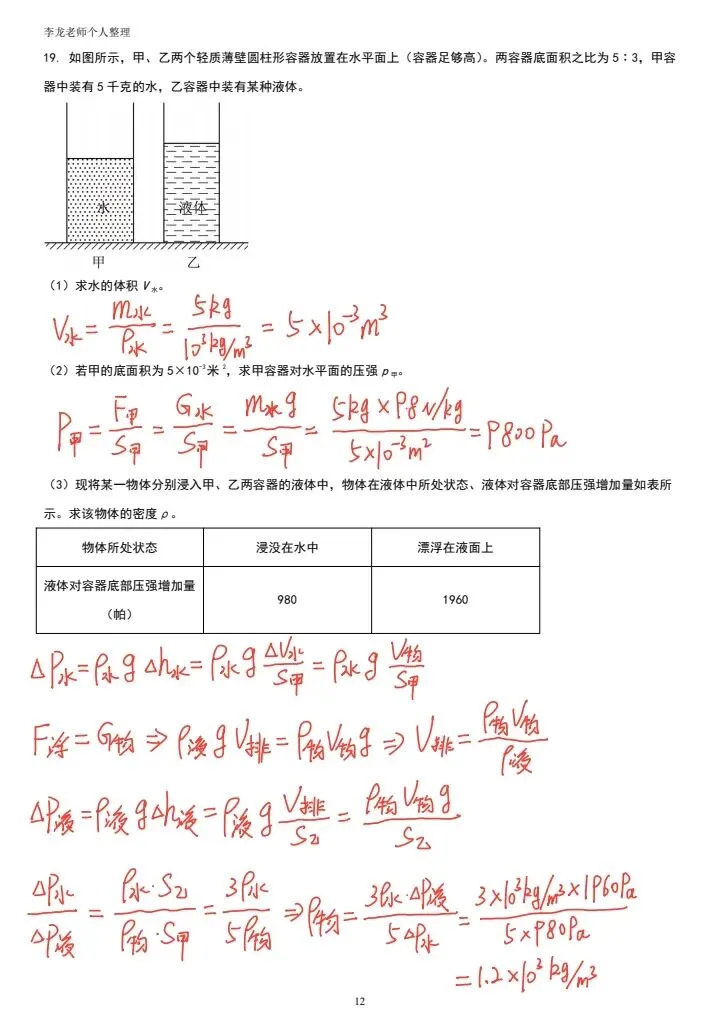 李龙老师个人整理
19. 如图所示，甲、乙两个轻质薄壁圆柱形容器放置在水平面上（容器足够高）。两容器底面积之比为 5∶3，甲容
器中装有 5 千克的水，乙容器中装有某种液体。
水 液体
甲 乙
（1）求水的体积 V水。
V水 = m水/ρ水 = 5kg/10³kg/m³ = 5×10⁻³m³
（2）若甲的底面积为 5×10⁻³米²，求甲容器对水平面的压强 p甲。
P甲 = F甲/S甲 = G水/S甲 = m水g/S甲 = 5kg×9.8N/kg/5×10⁻³m² = 9800Pa
（3）现将某一物体分别浸入甲、乙两容器的液体中，物体在液体中所处状态、液体对容器底部压强增加量如表所
示。求该物体的密度 ρ。
物体所处状态 浸没在水中 漂浮在液面上
液体对容器底部压强增加量
（帕） 980 1960
ΔP水=ρ水gΔh水=ρ水g ΔV水/S甲=ρ水g V物/S甲
F浮=G物⇒ρ液gV排=ρ物V物g⇒V排=ρ物V物/ρ液
ΔP液=ρ液gΔh液=ρ液g V排/S乙=ρ物V物g/S乙
ΔP水/ΔP液=ρ水·S乙/ρ物·S甲=3ρ水/5ρ物⇒ρ物=3ρ水·ΔP液/5ΔP水=3×10³kg/m³×1960Pa/5×980Pa
=1.2×10³kg/m³
12